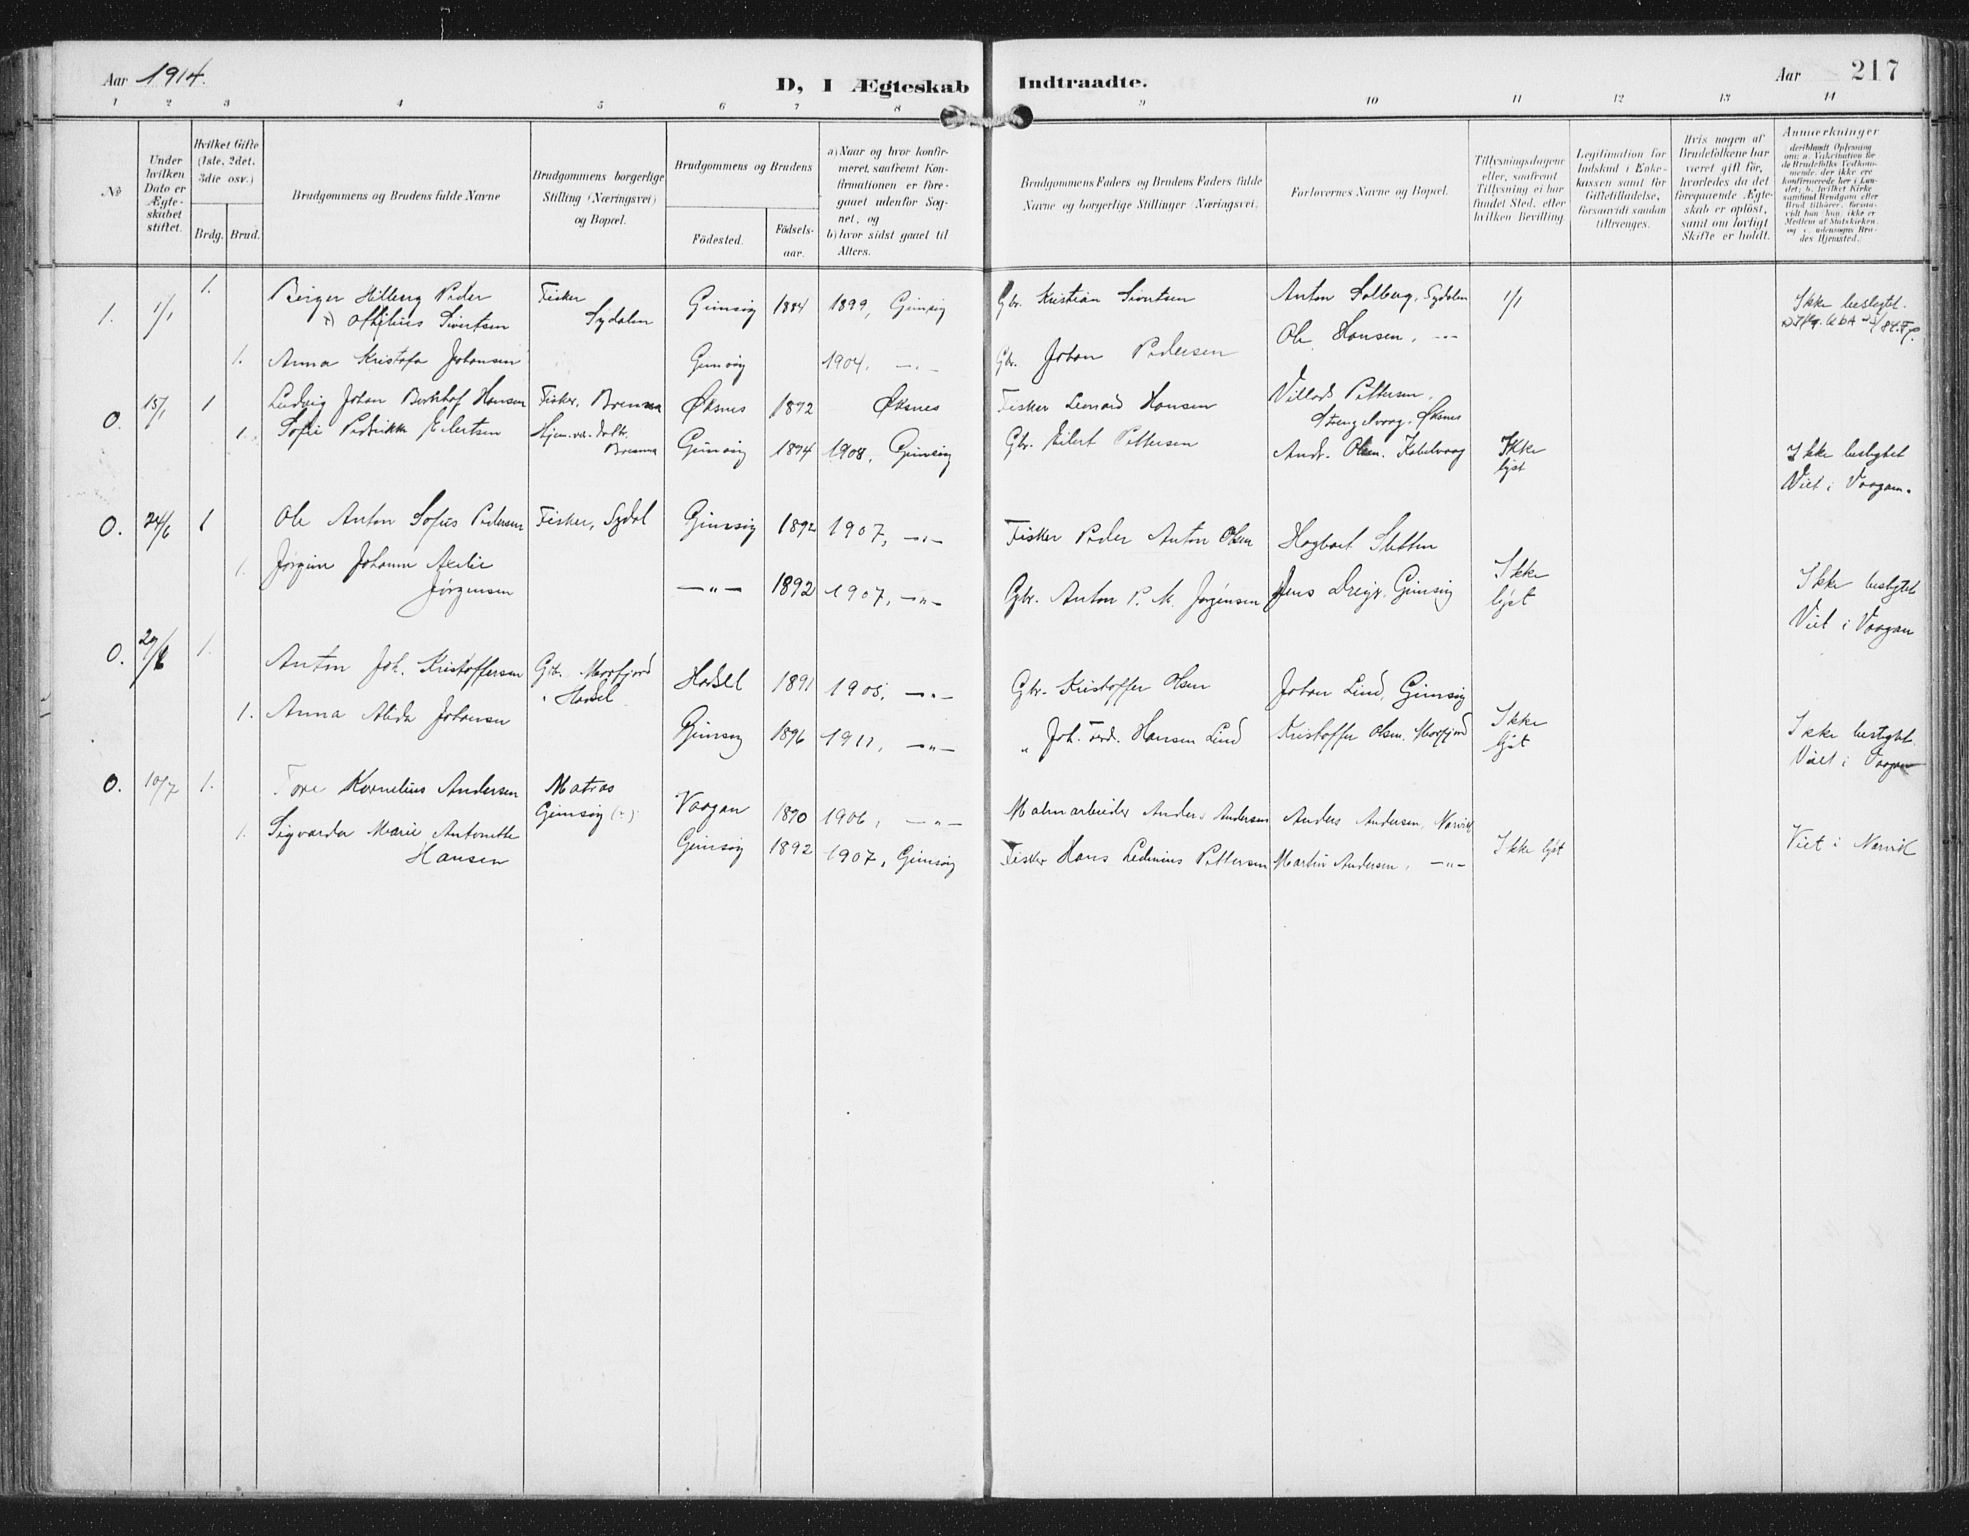 Aar 1914.
D, I Ægteskab Indtraadte.
Aar 217
1 2 3 4 5 6 7 8 9 10 11 12 13 14
No
Under hvilken Dato er Ægteskabet stiftet.
Hvilket Gifte (1ste, 2det, 3die osv.)
Brdg. Brud.
Brudgommens og Brudens fulde Navne
Brudgommens borgerlige Stilling (Næringsvei) og Bopæl.
Brudgommens og Brudens
Födested.
Födselsaar.
a) Naar og hvor konfirmeret, saafremt Konfirmationen er foregaaet udenfor Sognet, og
b) hvor sidst gaaet til Alters.
Brudgommens Faders og Brudens Faders fulde Navne og borgerlige Stillinger (Næringsvei)
Forlovernes Navne og Bopæl.
Tillysningsdagene eller, saafremt Tillysning ei har fundet Sted, efter hvilken Bevilling.
Legitimation for Indskud i Enkekassen samt for Giftetilladelse, forsaavidt saadan tiltrænges.
Hvis nogen af Brudefolkene har været gift för, hvorledes da det foregaaende Ægteskab er oplöst, samt om lovligt Skifte er holdt.
Anmærkninger
deriblandt Oplysning om: a. Vakcination for de Brudefolks Vedkommende, der ikke ere konfirmerede her i Landet; b. hvilket Kirkesamfund Brudgom eller Brud tilhører, forsaavidt han/hun ikke er Medlem af Statskirken, og c. udensogns Brudes Hjemsted.
1. 1/1 1. Birger Hilberg Peder Fisker Gimsöy 1884 1899, Gimsöy Gbr. Kristian Sivertsen Anton Solberg, Sydalen 1/1 Ikke beslegtet.
Othilius Sivertsen Sydalen Ole Hansen, -"-
1. Anna Kristofa Johansen Gimsöy 1904, -"- Gbr. Johan Pedersen
0. 15/1 1 Ludvig Johan Berthof Hansen Fisker, Brenna Øksnes 1892 Øksnes Fisker Leonard Hansen Villads Pettersen,
Strengelvaag, Øksnes
1. Sofie Pedrikke Eilertsen Hjem.vær. datter Brenna Gimsöy 1894 1908, Gimsöy Gbr. Eilert Pettersen Andr. Olsen, Kabelvaag Ikke lyst Ikke beslegtet
Viet i Vaagan.
0. 24/6 1 Ole Anton Sofus Pedersen Fisker, Sydal Gimsöy 1892 1907, -"- Fisker Peder Anton Olsen Hagbart Sletten
1. Jørgine Johanne Axelie Jørgensen -"- 1892 1907, -"- Gbr. Anton P. M. Jørgensen Jens Dreyer, Gimsöy Ikke lyst Ikke beslegtet
Viet i Vaagan
0. 29/6 1. Anton Joh. Kristoffersen Gbr. Morfjord i Hadsel Hadsel 1891 1905, -"- Gbr. Kristoffer Olsen Johan Lind, Gimsöy
1. Anna Alida Johansen Gimsöy 1896 1911, -"- " Joh. Ferd. Hansen Lind Kristoffer Olsen, Morfjord Ikke lyst Ikke beslegtet.
Viet i Vaagan
0. 10/7 1. Tore Kornelius Andersen Matros Vaagan 1890 1906, -"- Malmarbeider Anders Andersen Anders Andersen, Narvik
Gimsöy
1. Sigvarda Marie Antonette Hansen Gimsöy 1892 1907, Gimsöy Fisker Hans Ledinius Pettersen Martin Andersen, -"- Ikke lyst Viet i Narvik